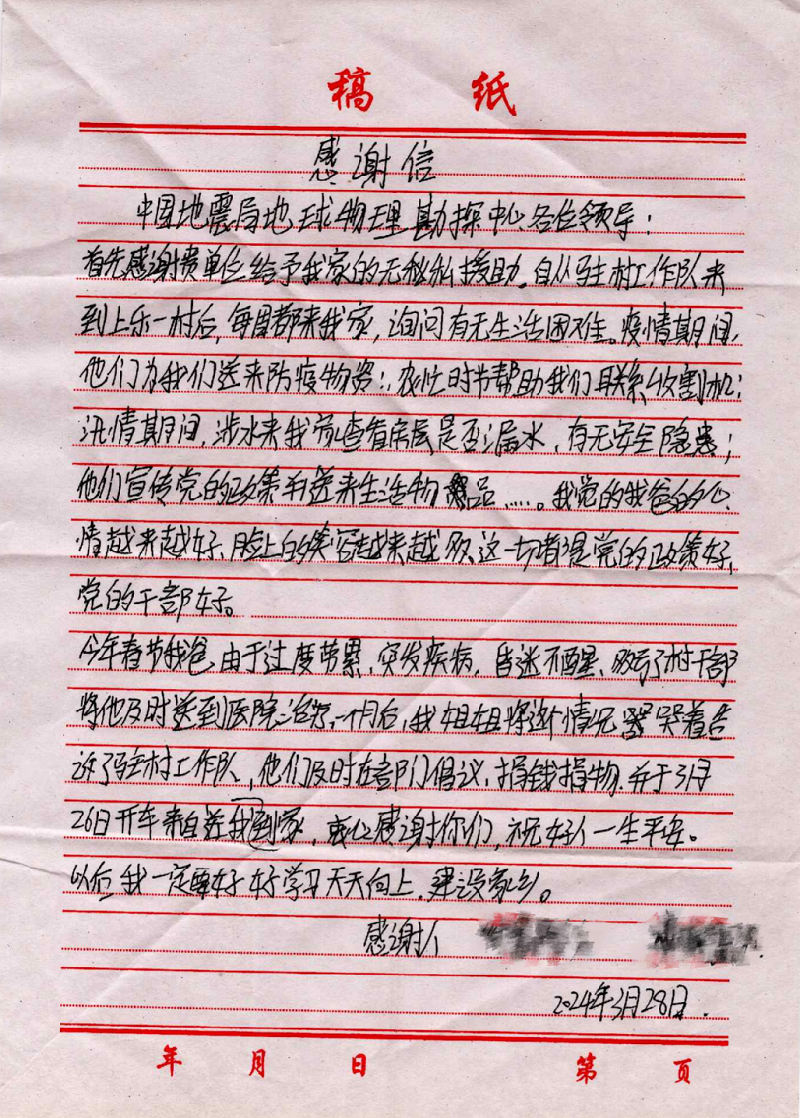 稿 纸
感谢信
中国地震局地球物理勘探中心各位领导:
首先感谢贵单位给予我家的无私援助。自从驻村工作队来
到上乐一村后,每周都来我家,询问有无生活困难。疫情期间,
他们为我们送来防疫物资;农忙时节帮助我们联系收割机;
汛情期间,涉水来我家查看房屋是否漏水,有无安全隐患;
他们宣传党的政策并送来生活物品……。我觉的我爸的心
情越来越好、脸上的笑容越来越多,这一切都是党的政策好,
党的干部好。
今年春节我爸由于过度劳累,突发疾病,昏迷不醒,
村干部
将他及时送到医院治疗,一个月后,我姐姐将这个情况哭着告
诉了驻村工作队,他们及时在部门倡议,捐钱捐物.并于3月
26日开车来自送到我家,衷心感谢你们,祝好人一生平安。
以后我一定要好好学习天天向上,建设家乡。
感谢人
2024年3月28日.
年 月 日 第 页